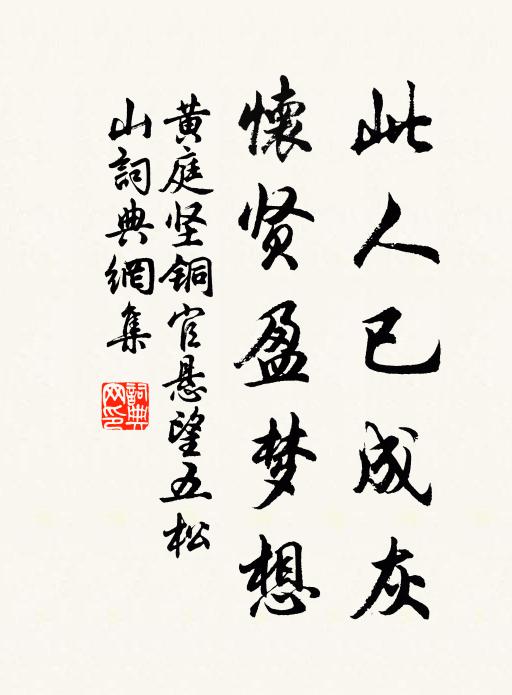 此人已成灰
懷贤盈梦想
黄庭坚铜官悬望五松
山詞典網集
詞典
网印